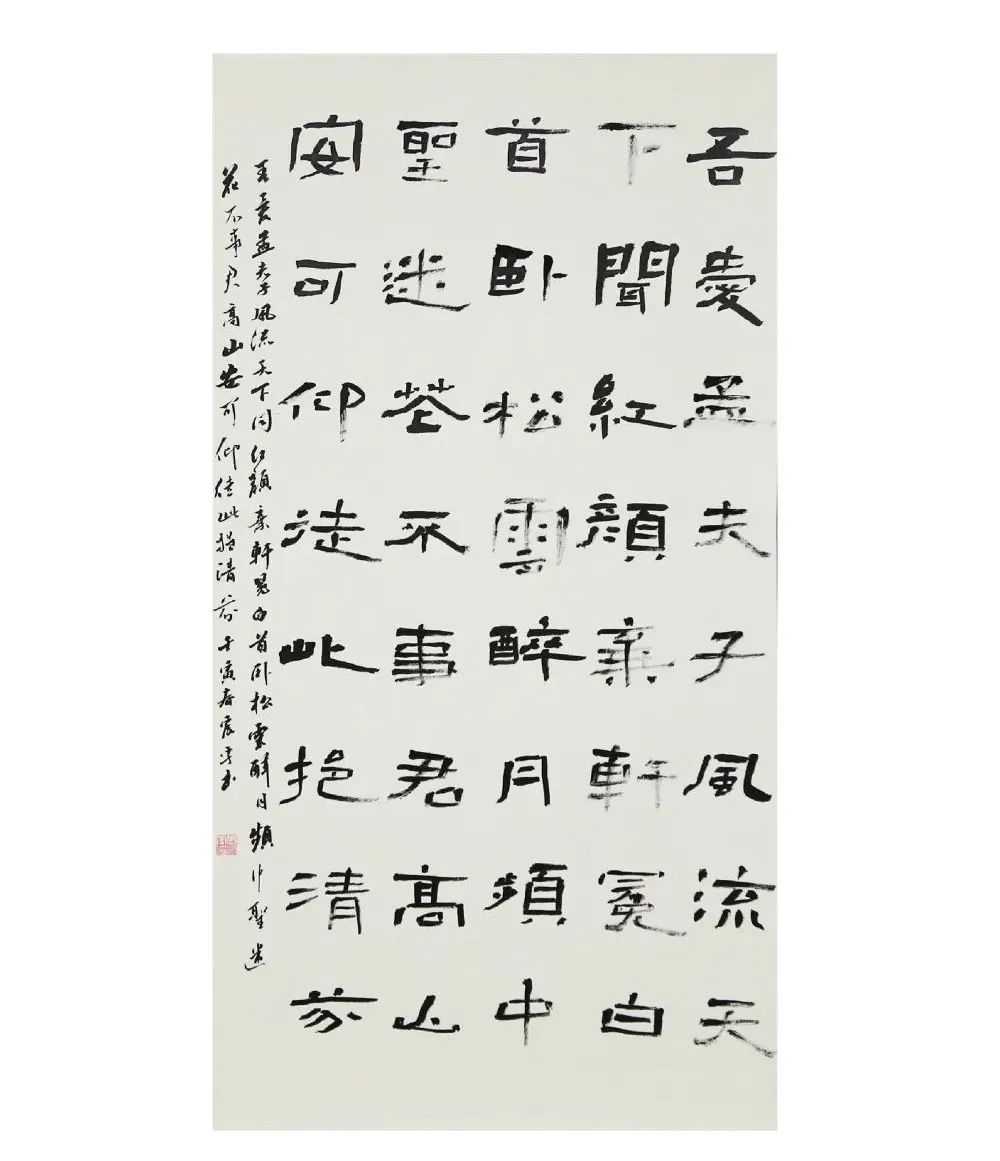 吾愛孟夫子風流天
下聞紅顏棄軒冕白
首卧松雲醉月頻中
聖迷花不事君高山
安可仰徒此挹清芬
吾愛孟夫子風流天下聞紅顏棄軒冕白首卧松雲醉月頻中聖迷
花不事君高山安可仰徒此挹清芬壬寅春書